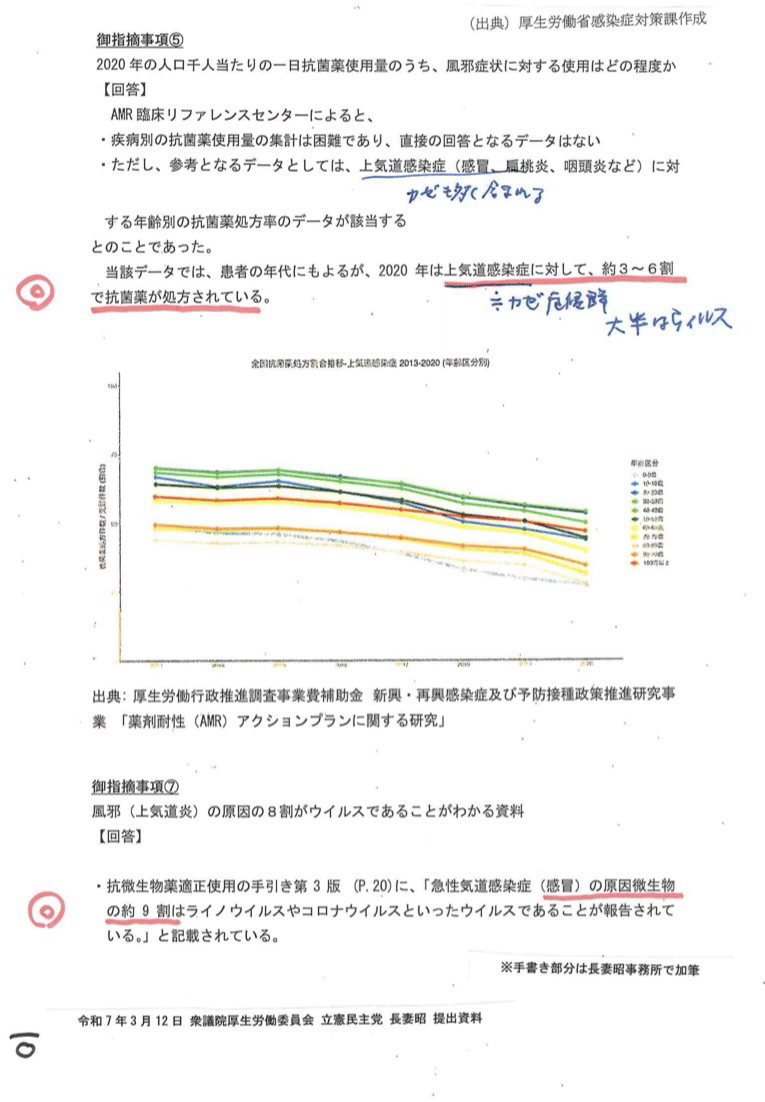 （出典）厚生労働省感染症対策課作成
御指摘事項⑤
2020年の人口千人当たりの一日抗菌薬使用量のうち、風邪症状に対する使用はどの程度か
【回答】
AMR臨床リファレンスセンターによると、
・疾病別の抗菌薬使用量の集計は困難であり、直接の回答となるデータはない
・ただし、参考となるデータとしては、上気道感染症（感冒、扁桃炎、咽頭炎など）に対
カゼも多く含まれる
する年齢別の抗菌薬処方率のデータが該当する
とのことであった。
当該データでは、患者の年代にもよるが、2020年は上気道感染症に対して、約３～６割
で抗菌薬が処方されている。
≒カゼ症候群
大半はウィルス
全国抗菌薬処方割合推移-上気道感染症 2013-2020 (年齢区分別)
100
75
50
年齢区分
10-19歳
20-29歳
100歳以上
出典：厚生労働行政推進調査事業費補助金 新興・再興感染症及び予防接種政策推進研究事
業 「薬剤耐性（AMR）アクションプランに関する研究」
御指摘事項⑦
風邪（上気道炎）の原因の８割がウイルスであることがわかる資料
【回答】
・抗微生物薬適正使用の手引き第３版 (P.20)に、「急性気道感染症（感冒）の原因微生物
の約９割はライノウイルスやコロナウイルスといったウイルスであることが報告されて
いる。」と記載されている。
※手書き部分は長妻昭事務所で加筆
令和７年３月12日 衆議院厚生労働委員会 立憲民主党 長妻昭 提出資料
10